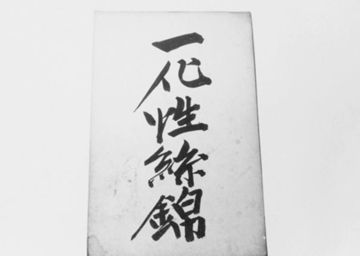 一化性絲錦